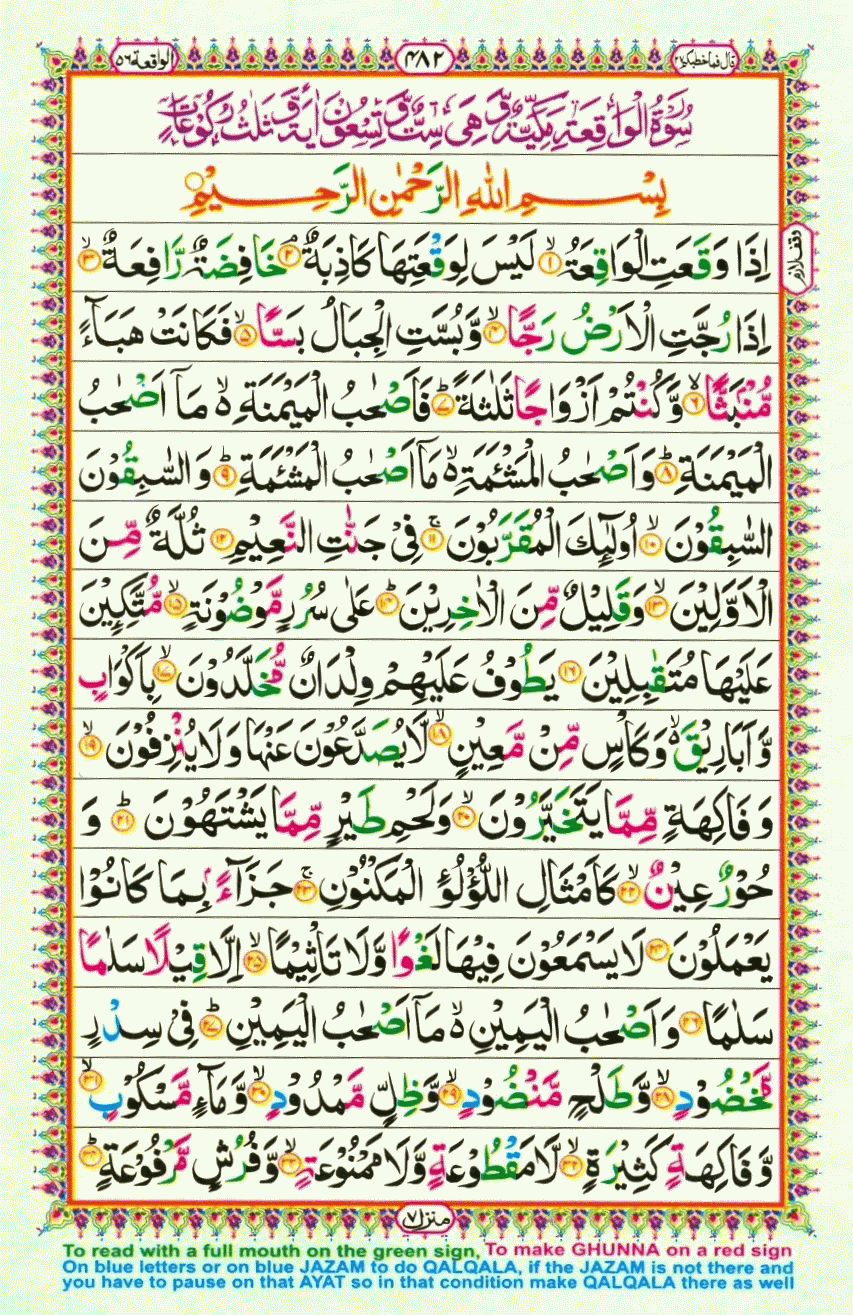 قال فما خطبكم ٢٧
٤٨٢
الواقعة ٥٦
سُوْرَةُ الْوَاقِعَةِ مَكِّيَّةٌ وَّهِىَ سِتٌّ وَّتِسْعُوْنَ اٰيَةً وَّثَلٰثُ رُكُوْعَاتٍ
بِسْمِ اللّٰهِ الرَّحْمٰنِ الرَّحِيْمِ
اِذَا وَقَعَتِ الْوَاقِعَةُ ۙ‏﴿۱﴾ لَيْسَ لِوَقْعَتِهَا كَاذِبَةٌ ۘ‏﴿۲﴾ خَافِضَةٌ رَّافِعَةٌ ۙ‏﴿۳﴾
وقف لازم
اِذَا رُجَّتِ الْاَرْضُ رَجًّا ۙ‏﴿۴﴾ وَّبُسَّتِ الْجِبَالُ بَسًّا ۙ‏﴿۵﴾ فَكَانَتْ هَبَآءً
مُّنْۢبَثًّا ۙ‏﴿۶﴾ وَّكُنْتُمْ اَزْوَاجًا ثَلٰثَةً ؕ‏﴿۷﴾ فَاَصْحٰبُ الْمَيْمَنَةِ ۙ مَاۤ اَصْحٰبُ
الْمَيْمَنَةِ ؕ‏﴿۸﴾ وَاَصْحٰبُ الْمَشْئَمَةِ ۙ مَاۤ اَصْحٰبُ الْمَشْئَمَةِ ؕ‏﴿۹﴾ وَالسّٰبِقُوْنَ
السّٰبِقُوْنَ ۙ‏﴿۱۰﴾ اُولٰٓئِكَ الْمُقَرَّبُوْنَ ۚ‏﴿۱۱﴾ فِىْ جَنّٰتِ النَّعِيْمِ ﴿۱۲﴾ ثُلَّةٌ مِّنَ
الْاَوَّلِيْنَ ۙ‏﴿۱۳﴾ وَقَلِيْلٌ مِّنَ الْاٰخِرِيْنَ ؕ‏﴿۱۴﴾ عَلٰى سُرُرٍ مَّوْضُوْنَةٍ ۙ‏﴿۱۵﴾ مُّتَّكِـِٕيْنَ
عَلَيْهَا مُتَقٰبِلِيْنَ ﴿۱۶﴾ يَطُوْفُ عَلَيْهِمْ وِلْدَانٌ مُّخَلَّدُوْنَ ۙ‏﴿۱۷﴾ بِاَكْوَابٍ
وَّاَبَارِيْقَ ۙ وَكَاْسٍ مِّنْ مَّعِيْنٍ ۙ‏﴿۱۸﴾ لَّا يُصَدَّعُوْنَ عَنْهَا وَلَا يُنْزِفُوْنَ ۙ‏﴿۱۹﴾
وَفَاكِهَةٍ مِّمَّا يَتَخَيَّرُوْنَ ۙ‏﴿۲۰﴾ وَلَحْمِ طَيْرٍ مِّمَّا يَشْتَهُوْنَ ؕ‏﴿۲۱﴾ وَ
حُوْرٌ عِيْنٌ ۙ‏﴿۲۲﴾ كَاَمْثَالِ اللُّؤْلُؤِ الْمَكْنُوْنِ ۚ‏﴿۲۳﴾ جَزَآءًۢ بِمَا كَانُوْا
يَعْمَلُوْنَ ﴿۲۴﴾ لَا يَسْمَعُوْنَ فِيْهَا لَغْوًا وَّلَا تَاْثِيْمًا ۙ‏﴿۲۵﴾ اِلَّا قِيْلًا سَلٰمًا
سَلٰمًا ﴿۲۶﴾ وَاَصْحٰبُ الْيَمِيْنِ ۙ مَاۤ اَصْحٰبُ الْيَمِيْنِ ؕ‏﴿۲۷﴾ فِىْ سِدْرٍ
مَّخْضُوْدٍ ۙ‏﴿۲۸﴾ وَّطَلْحٍ مَّنْضُوْدٍ ۙ‏﴿۲۹﴾ وَّظِلٍّ مَّمْدُوْدٍ ۙ‏﴿۳۰﴾ وَّمَآءٍ مَّسْكُوْبٍ ۙ‏﴿۳۱﴾
وَّفَاكِهَةٍ كَثِيْرَةٍ ۙ‏﴿۳۲﴾ لَّا مَقْطُوْعَةٍ وَّلَا مَمْنُوْعَةٍ ۙ‏﴿۳۳﴾ وَّفُرُشٍ مَّرْفُوْعَةٍ ؕ‏﴿۳۴﴾
منزل ٧
To read with a full mouth on the green sign, To make GHUNNA on a red sign
On blue letters or on blue JAZAM to do QALQALA, if the JAZAM is not there and
you have to pause on that AYAT so in that condition make QALQALA there as well